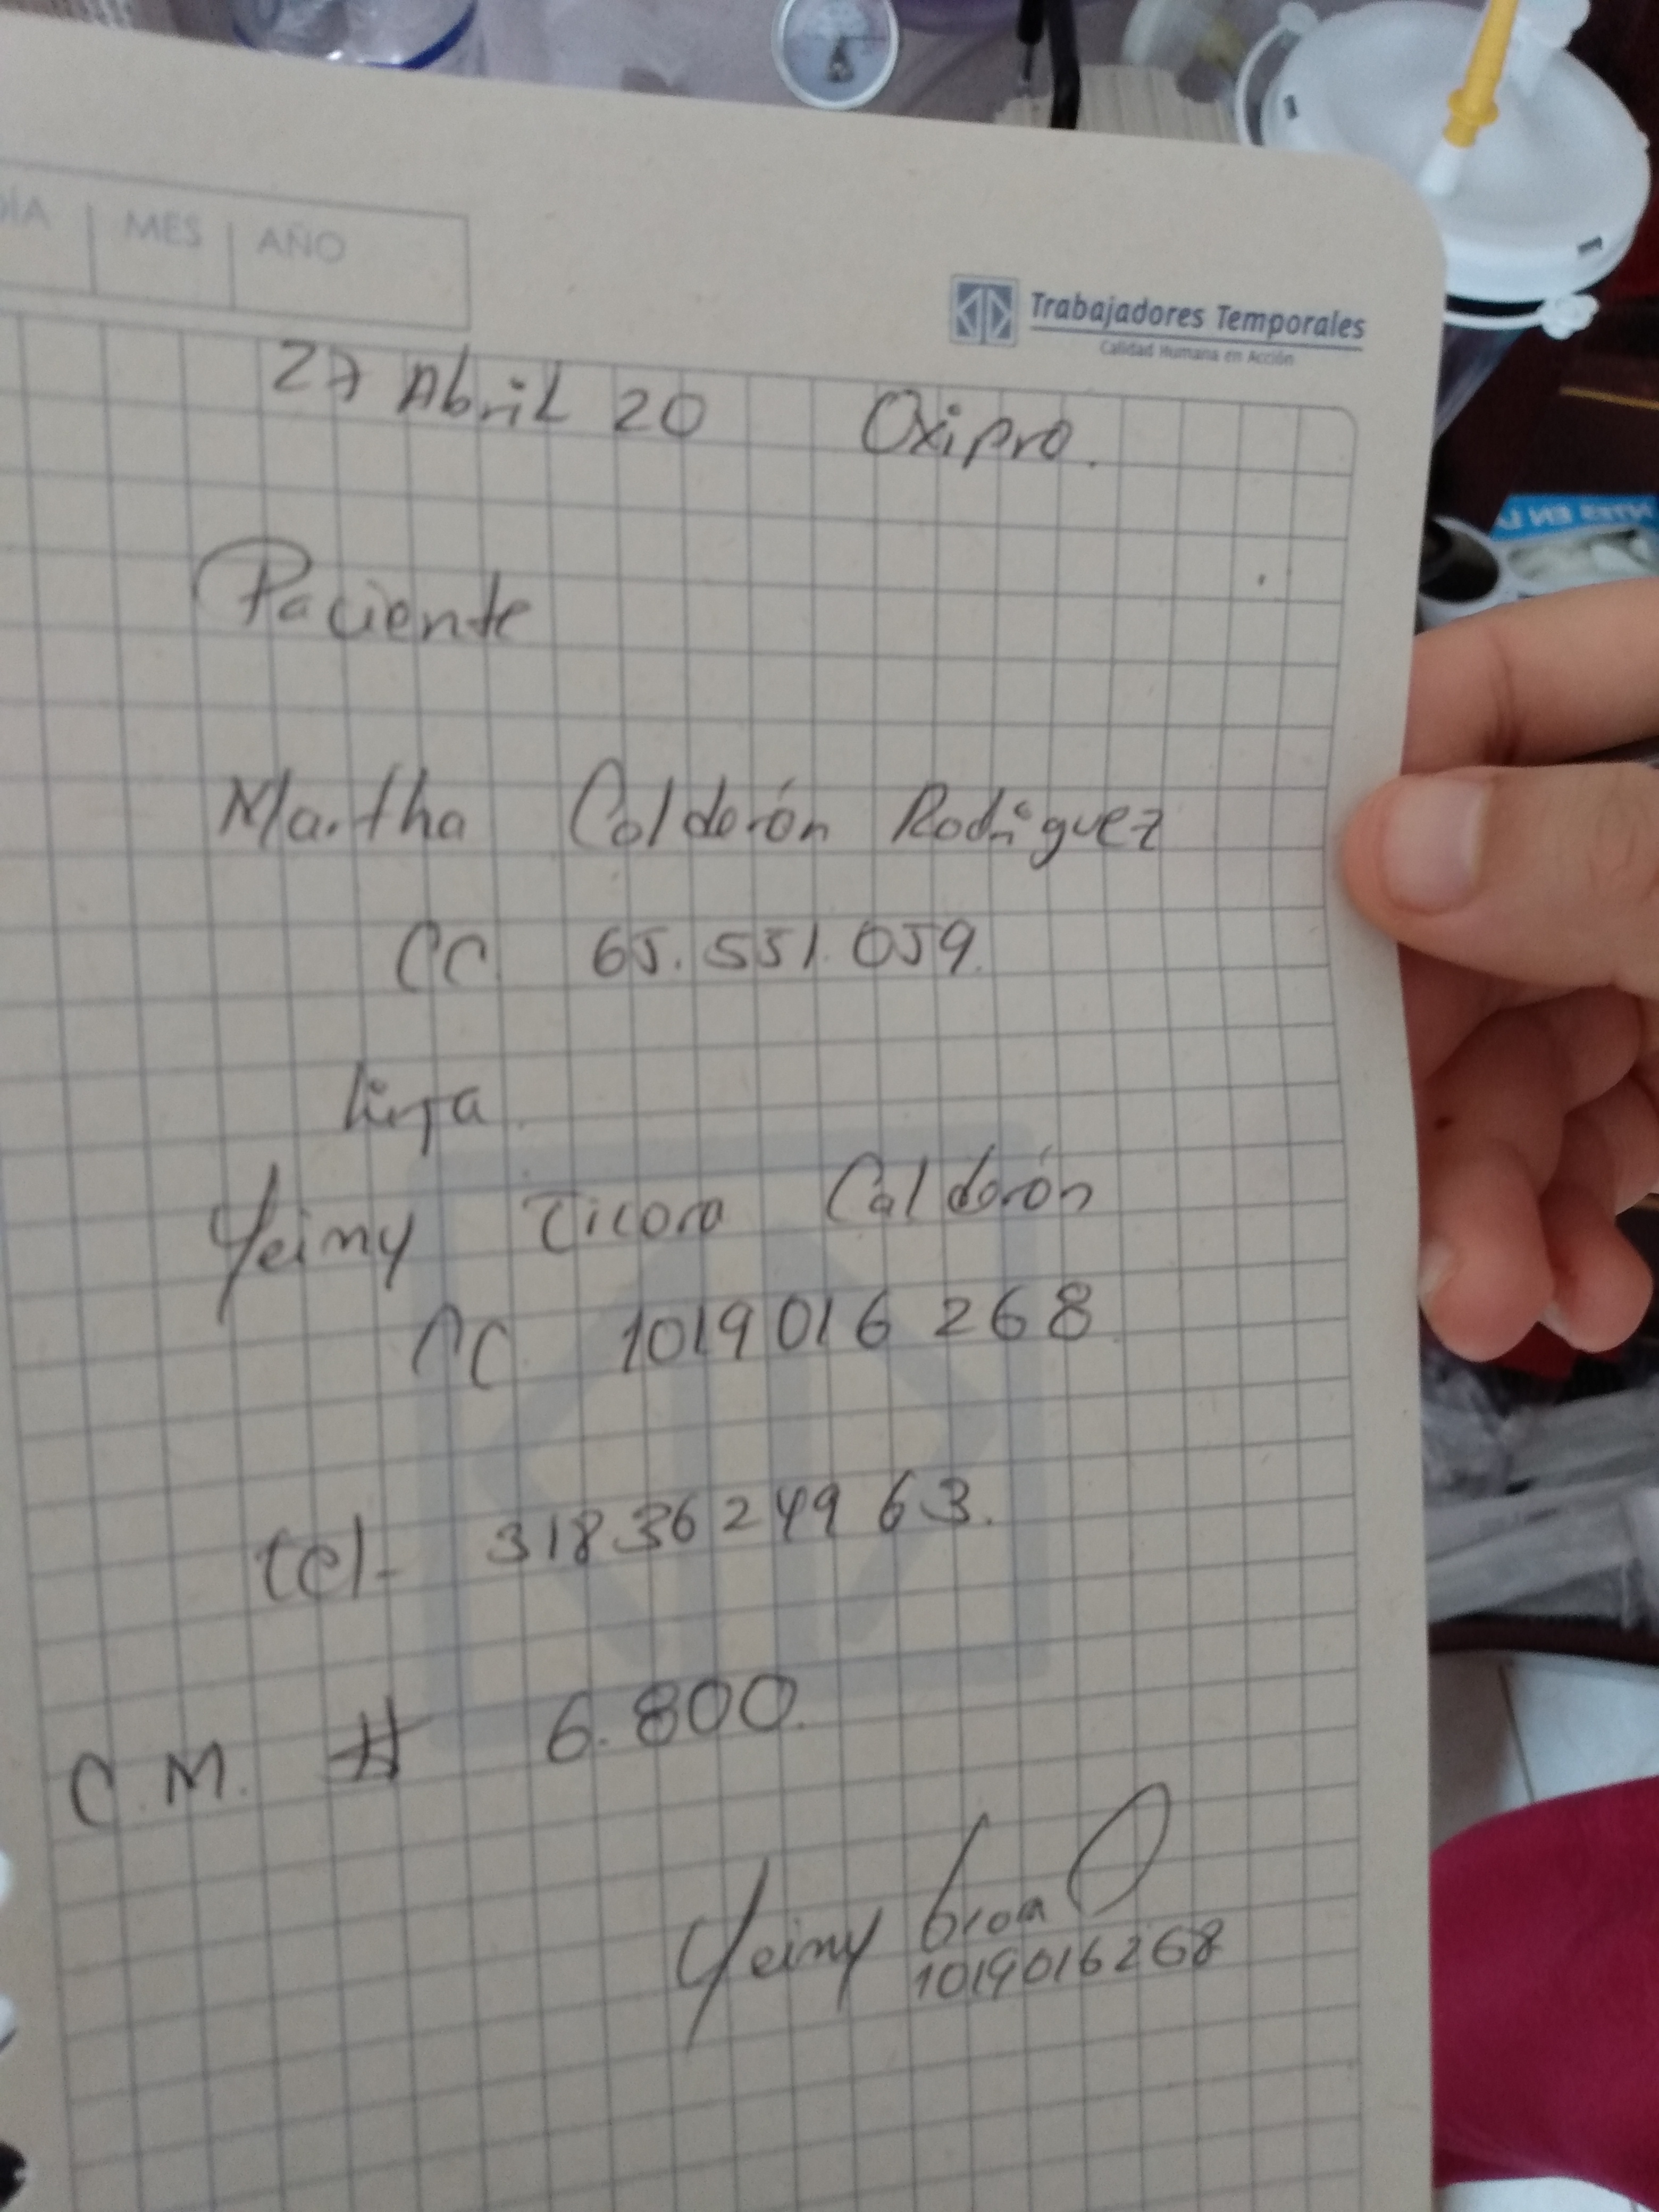 DÍA | MES | AÑO
Trabajadores Temporales
Calidad Humana en Acción
27 Abril 20 Oxipro.
Paciente
Martha Calderón Rodríguez
CC 65.551.059.
hija
Yeimy Ticora Calderón
CC 1019016 268
tel- 318 36 249 63.
C.M. # 6.800.
Yeimy
1019016268